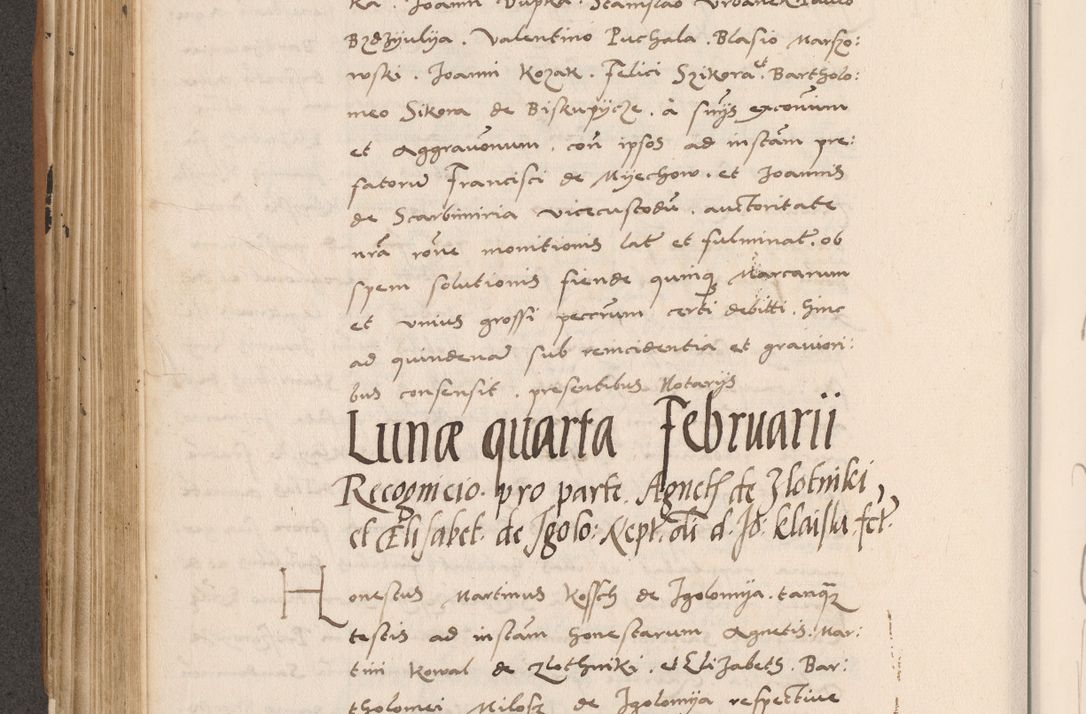 Ioanni Dupka . Stanislao Urbanek
Bzdzyulya . Valentino Puchala . Blasio Marszo:
wski . Ioanni Kozak . Felici Szikora et Bartholo:
meo Sikora de Biskupycze . à suıs exconium
et Aggrauonum . con ipsos ad instam pre:
fatoru Francisci de Myechow . et Joannis
de Scarbimiria vicecustodu . auctoritate
nra rone monitionis lat et fulminat . ob
spem solutionis fiende quinq Marcarum
et vnius grossi peccrum certi debitti . hinc
ad quindena sub reincidentia et grauiori:
bus consensit . presentibus Notarys
Lunæ quarta Februarii
Recogncio . pro parte . Agneth de Zlotniki,
et Elisabet . de Igolo: Rept. d. Klaiski fct.
Honestus Martinus Kossch de Igolomya . tanq
testis ad instam honestarum Agnetis . Mar:
tini Kowal de Zlothniki . et Elizabeth . Bar:
tholomei Milosz de Igolomya respective